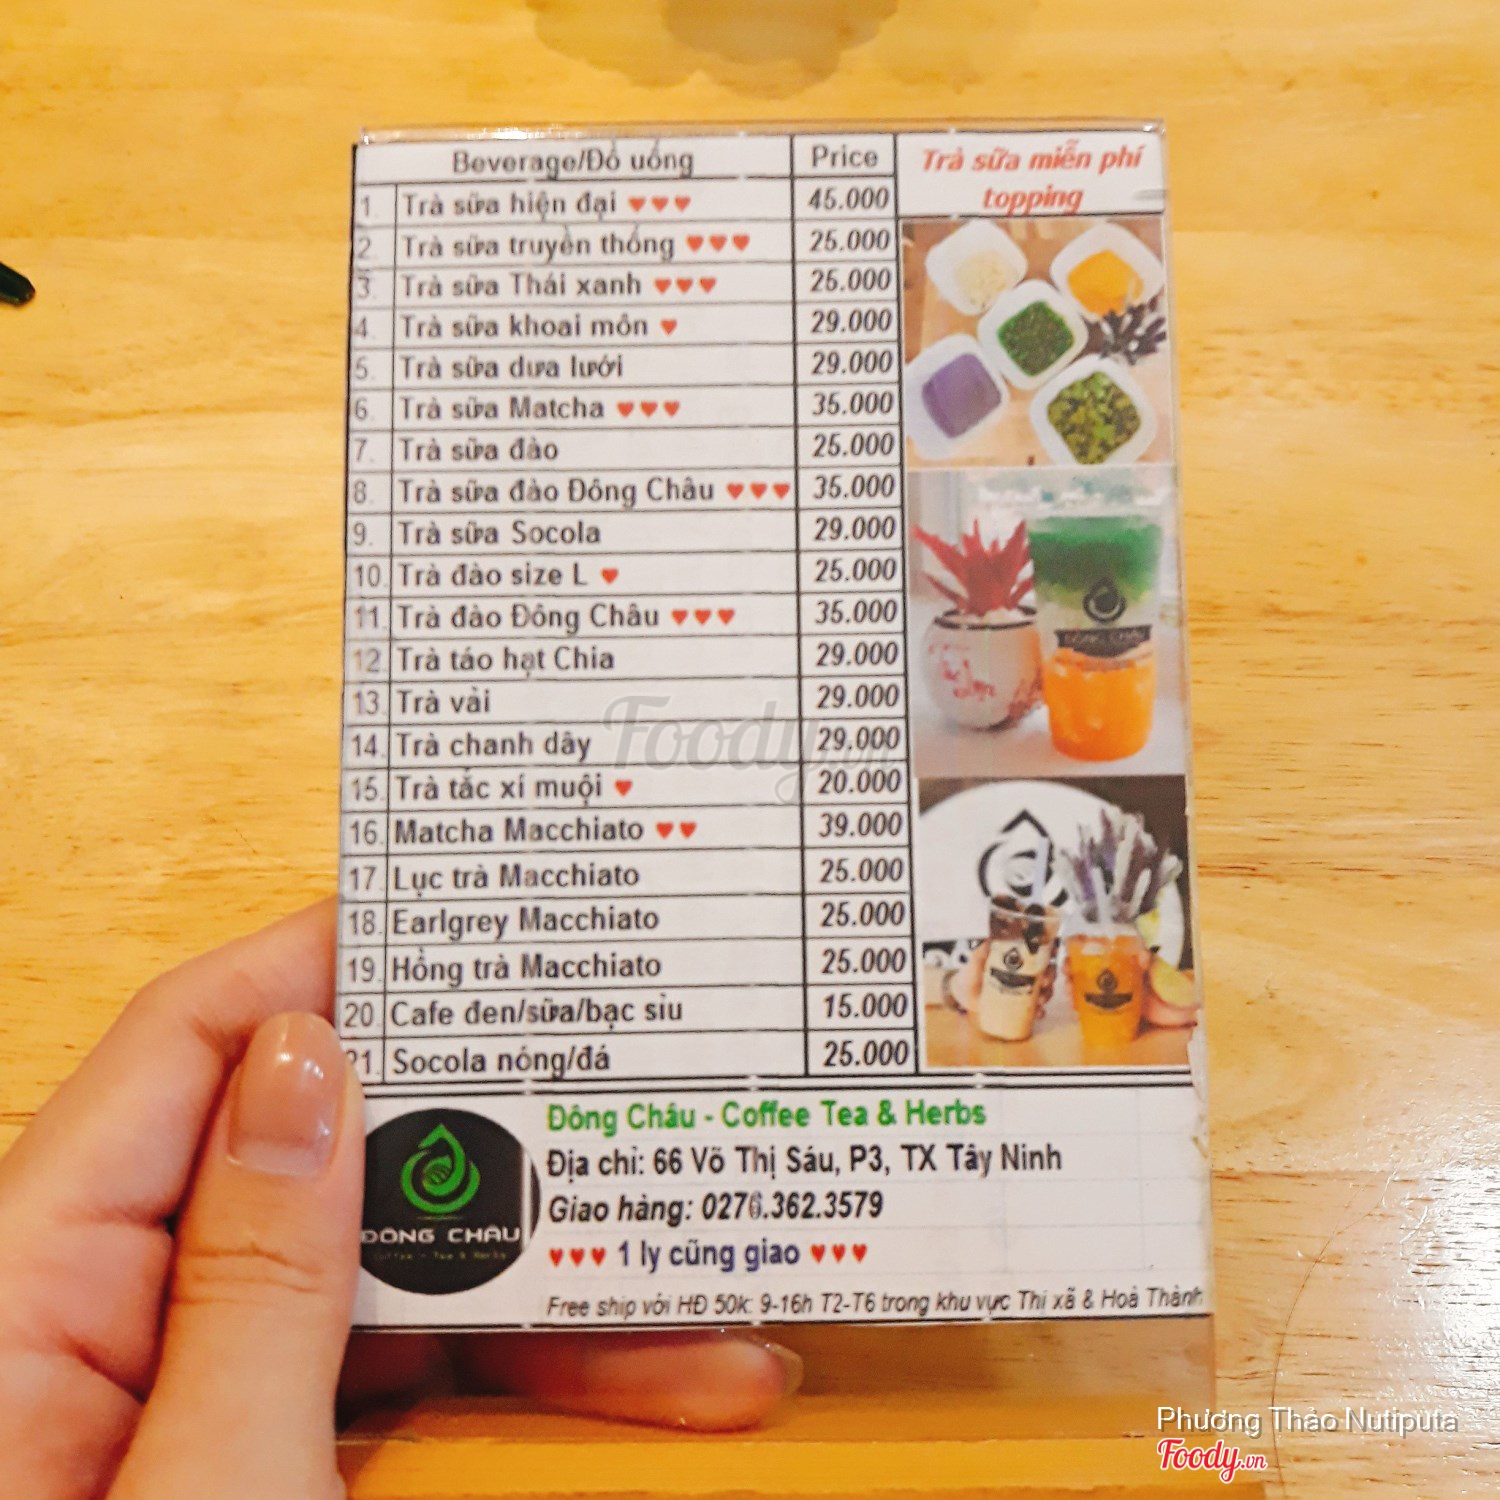 Beverage/Đồ uống Price
1. Trà sữa hiện đại ♥♥♥ 45.000
2. Trà sữa truyền thống ♥♥♥ 25.000
3. Trà sữa Thái xanh ♥♥♥ 25.000
4. Trà sữa khoai môn ♥ 29.000
5. Trà sữa dưa lưới 29.000
6. Trà sữa Matcha ♥♥♥ 35.000
7. Trà sữa đào 25.000
8. Trà sữa đào Đông Châu ♥♥♥ 35.000
9. Trà sữa Socola 29.000
10. Trà đào size L ♥ 25.000
11. Trà đào Đông Châu ♥♥♥ 35.000
12. Trà táo hạt Chia 29.000
13. Trà vải 29.000
14. Trà chanh dây 29.000
15. Trà tắc xí muội ♥ 20.000
16. Matcha Macchiato ♥♥ 39.000
17. Lục trà Macchiato 25.000
18. Earlgrey Macchiato 25.000
19. Hồng trà Macchiato 25.000
20. Cafe đen/sữa/bạc sỉu 15.000
21. Socola nóng/đá 25.000
Trà sữa miễn phí
topping
ĐÔNG CHÂU
Foody.vn
ĐÔNG CHÂU
Coffee - Tea & Herbs
Đông Châu - Coffee Tea & Herbs
Địa chỉ: 66 Võ Thị Sáu, P3, TX Tây Ninh
Giao hàng: 0276.362.3579
♥♥♥ 1 ly cũng giao ♥♥♥
Free ship với HĐ 50k: 9-16h T2-T6 trong khu vực Thị xã & Hoà Thành
Phương Thảo Nutiputa
Foody.vn